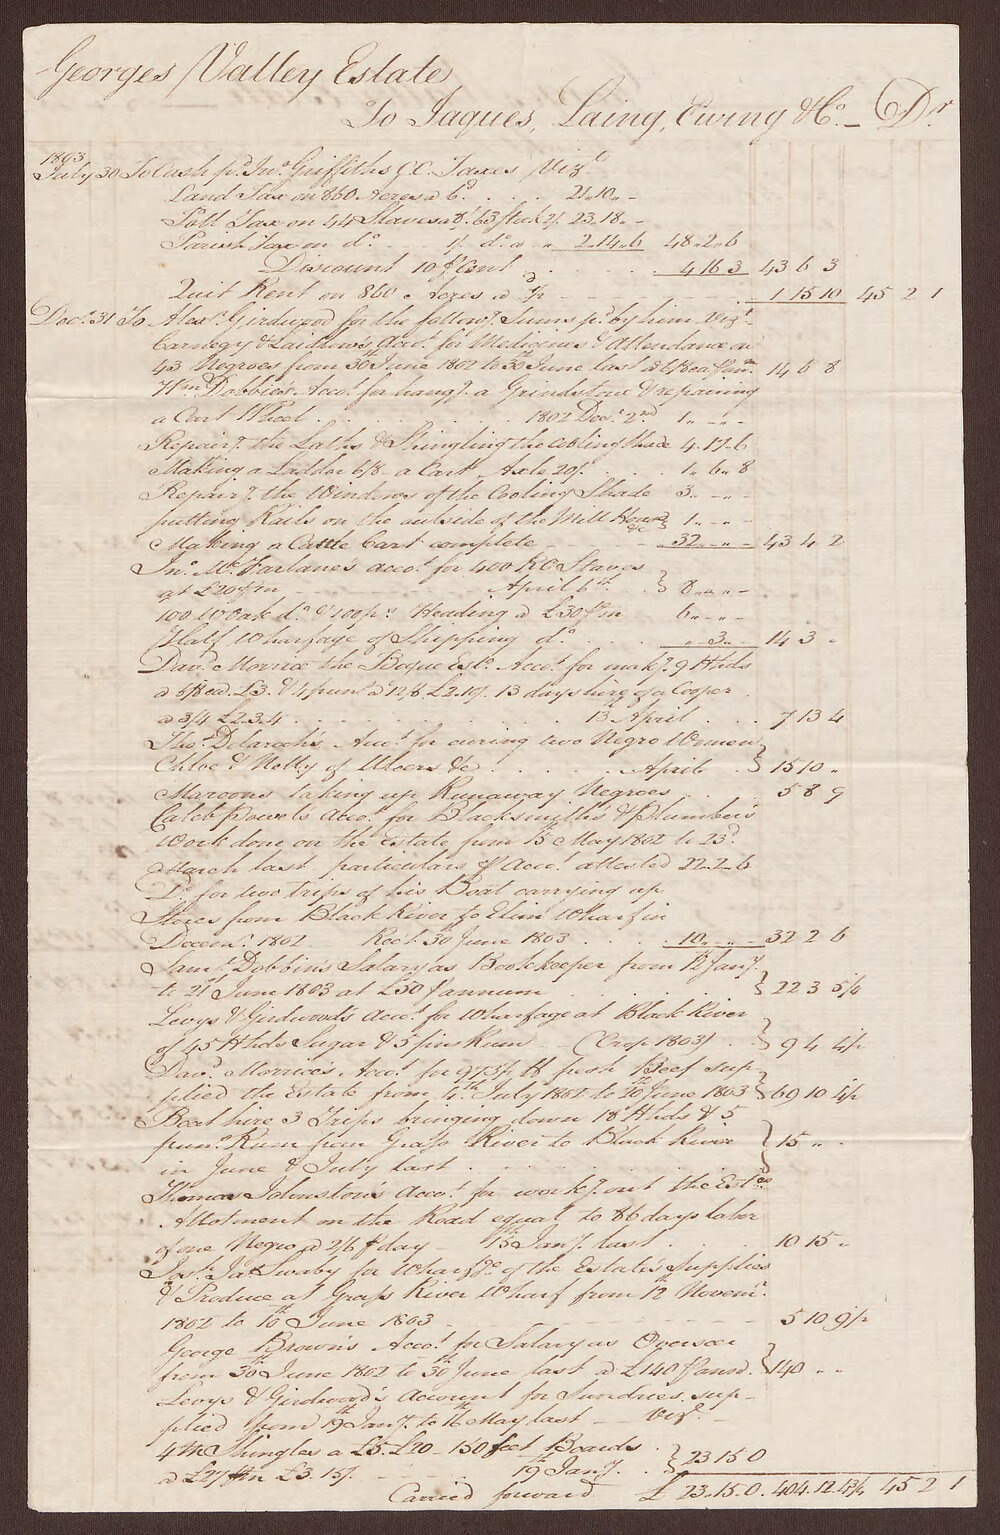 Georges Valley Estate
To Jaques, Laing, Ewing & Co. – Dr.
1803
July 30 To Cash pd. Jno. Griffiths C.C. Taxes Vizt.
Land Tax on 860 Acres a 6d. . . . 21.10..–
Poll Tax on 44 Slaves & 63 Stock 23.18.–
Parish Tax on do. – – – do. a – „ 2.14..6 48..2..6
Discount 10 ⅌ Cent . . . . . 4 16 3 43 6 3
Quit Rent on 860 Acres a ½ – – – – 1 15 10 45 2 1
Decr. 31 To Alexr. Girdwood for the followg. Sums pd. by him Vizt.
Carnegy & Laidlaw's Acct. for Medicines & Attendance on
43 Negroes from 30th June 1802 to 30th June last a 6/8 ea ⅌ann. 14 6 8
Wm. Dobbie's Acct. for hangg. a Grindstone & repairing
a Cart Wheel . . . . . . 1802 Decr. 2nd 1..–..–
Repairg. the Laths & Shingling the Cooling Shade 4.17.6
Making a Ladder 6/8 – a Cart Axle 20/. . . . 1..6..8
Repairg. the Windows of the Cooling Shade 3..–..–
putting Rails on the outside of the Mill House &c 1..–..–
Making a Cattle Cart complete – – – – 32..–..– 43 4 2
Jno. McFarlane's acct. for 400 RO Staves
at £20 ⅌ m – – – – April 6th. . } 8..–..–
100 WOak do. & 100 ps. Heading a £30 ⅌ m 6..–..–
Half Wharfage of Shipping do. . . . „ 3..– 14 3 „
Davd. Morrice the Bogue Est. Acct. for makg. 9 Hhds
a 6/8 ea. £3. & 4 puns. a 12/6 £2.10/. 13 days hire of a Cooper
a 3/4 £2.3.4 . . . . . . 13th April . . . 7 13 4
Thos. Delaroch's Acct. for curing two Negro Women
Chloe & Nelly of Ulcers &c. . . . . April . . } 15 10 „
Maroons taking up Runaway Negroes . . . 5 8 9
Caleb Powels Acct. for Blacksmith's & Plumber's
Work done on the Estate from 15th May 1802 to 23d.
March last particulars ⅌ Acct. attested 22..2..6
Do. for two trips of his Boat carrying up
Stores from Black River to Elim Wharf in
Decemr. 1802 – Rect. 30th June 1803 . . . . 10..–..– 32 2 6
Saml. Dobbin's Salary as Bookkeeper from 12th Jany.
to 21st June 1803 at £50 ⅌ annum . . . . . } 22 3 5½
Levys & Girdwood's Acct. for Wharfage at Black River
of 45 Hhds Sugar & 5 puns Rum – (Crop 1803) . . } 9 4 4½
Davd. Morrice's Acct. for 973½ lb fresh Beef sup-
plied the Estate from 4th. July 1802 to 20th June 1803 } 69 10 4½
Boat hire 3 Trips bringing down 18 Hhds & 5
puns. Rum from Grass River to Black River
in June & July last . . . . . . } 15 „ –
Thomas Johnston's Acct. for workg. out the Estes.
Allotment on the Road equal to 86 days labor
of one Negro a 2/6 ⅌ day – 15th Jany. last . . . 10 15 „
Josh. Jas. Swaby for Wharfge. of the Estate's Supplies
& Produce at Grass River Wharf from 12th Novemr.
1802 to 10th June 1803 – – – – – – 5 10 9½
George Brown's Acct. for Salary as Overseer
from 30th June 1802 to 30th June last a £140 ⅌ann. } 140 „ –
Levys & Girdwood's Account for Sundries sup-
plied from 19th Jany. to 16th May last – – Vizt. –
4 M Shingles a £5. £20 – 150 feet Boards .
a £27 ⅌ m £3.15/. – – – 19th Jany. . . } 23 15 0
Carried forward £ 23..15.0. 404.12.4¾ 45 2 1